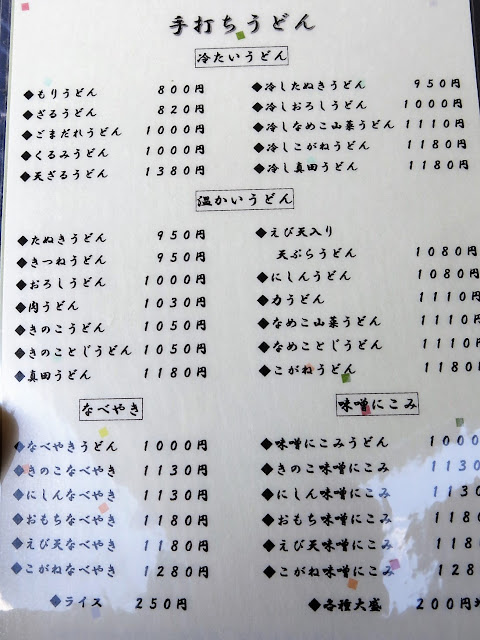 手打ちうどん
冷たいうどん
◆もりうどん 800円
◆ざるうどん 820円
◆ごまだれうどん 1000円
◆くるみうどん 1000円
◆天ざるうどん 1380円
◆冷したぬきうどん 950円
◆冷しおろしうどん 1000円
◆冷しなめこ山菜うどん 1110円
◆冷しこがねうどん 1180円
◆冷し真田うどん 1180円
温かいうどん
◆たぬきうどん 950円
◆きつねうどん 950円
◆おろしうどん 1000円
◆肉うどん 1030円
◆きのこうどん 1050円
◆きのことじうどん 1050円
◆真田うどん 1180円
◆えび天入り
天ぷらうどん 1080円
◆にしんうどん 1080円
◆力うどん 1110円
◆なめこ山菜うどん 1110円
◆なめことじうどん 1110円
◆こがねうどん 1180円
なべやき
◆なべやきうどん 1000円
◆きのこなべやき 1130円
◆にしんなべやき 1130円
◆おもちなべやき 1180円
◆えび天なべやき 1180円
◆こがねなべやき 1280円
◆ライス 250円
味噌にこみ
◆味噌にこみうどん 1000
◆きのこ味噌にこみ 1130
◆にしん味噌にこみ 1130
◆おもち味噌にこみ 1180
◆えび天味噌にこみ 1180
◆こがね味噌にこみ 128
◆各種大盛 200円